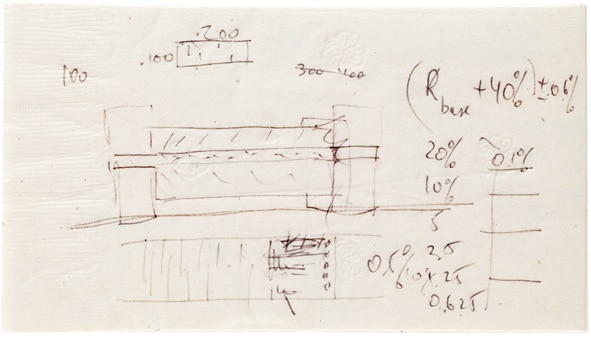 .200
.100
100
300 400
(R base +40%) ± 0.6%
20%
0.1%
10%
5
2.5
0.5%
1.25
0.625